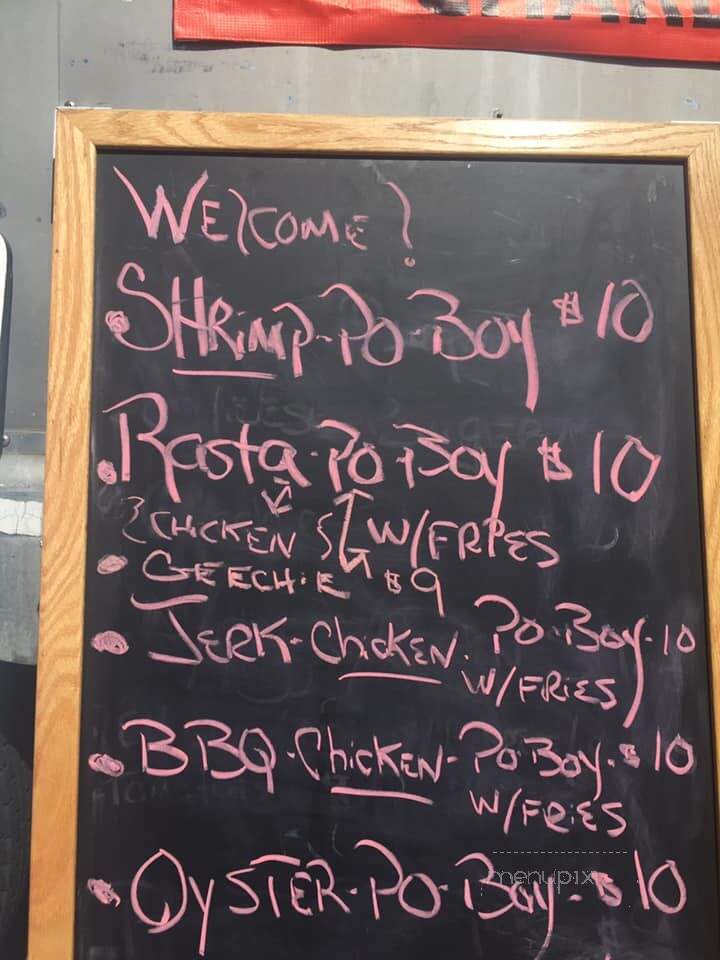 WELCOME!
SHRIMP-PO-BOY $10
Rasta-PO-BOY $10
CHICKEN W/FRPES
GEECHIE $9
JERK-ChICKEN. PO-BOY-10
W/FRiES
BBQ-ChicKEN-PO BOY-$10
W/FRiES
OYSTER-PO-Boy-$10
menupix